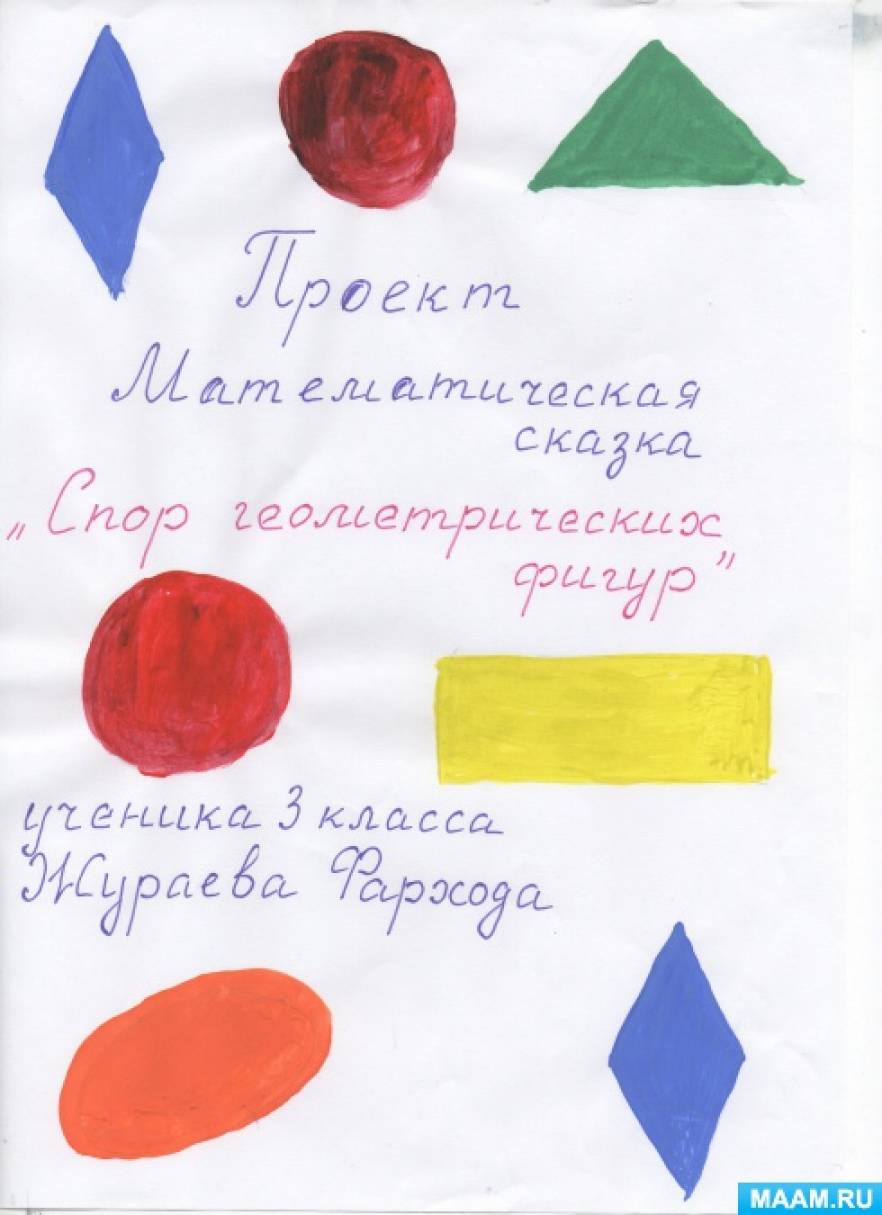 Проект
Математическая
сказка
„Спор геометрических
фигур"
ученика 3 класса
Жураева Фархода
MAAM.RU